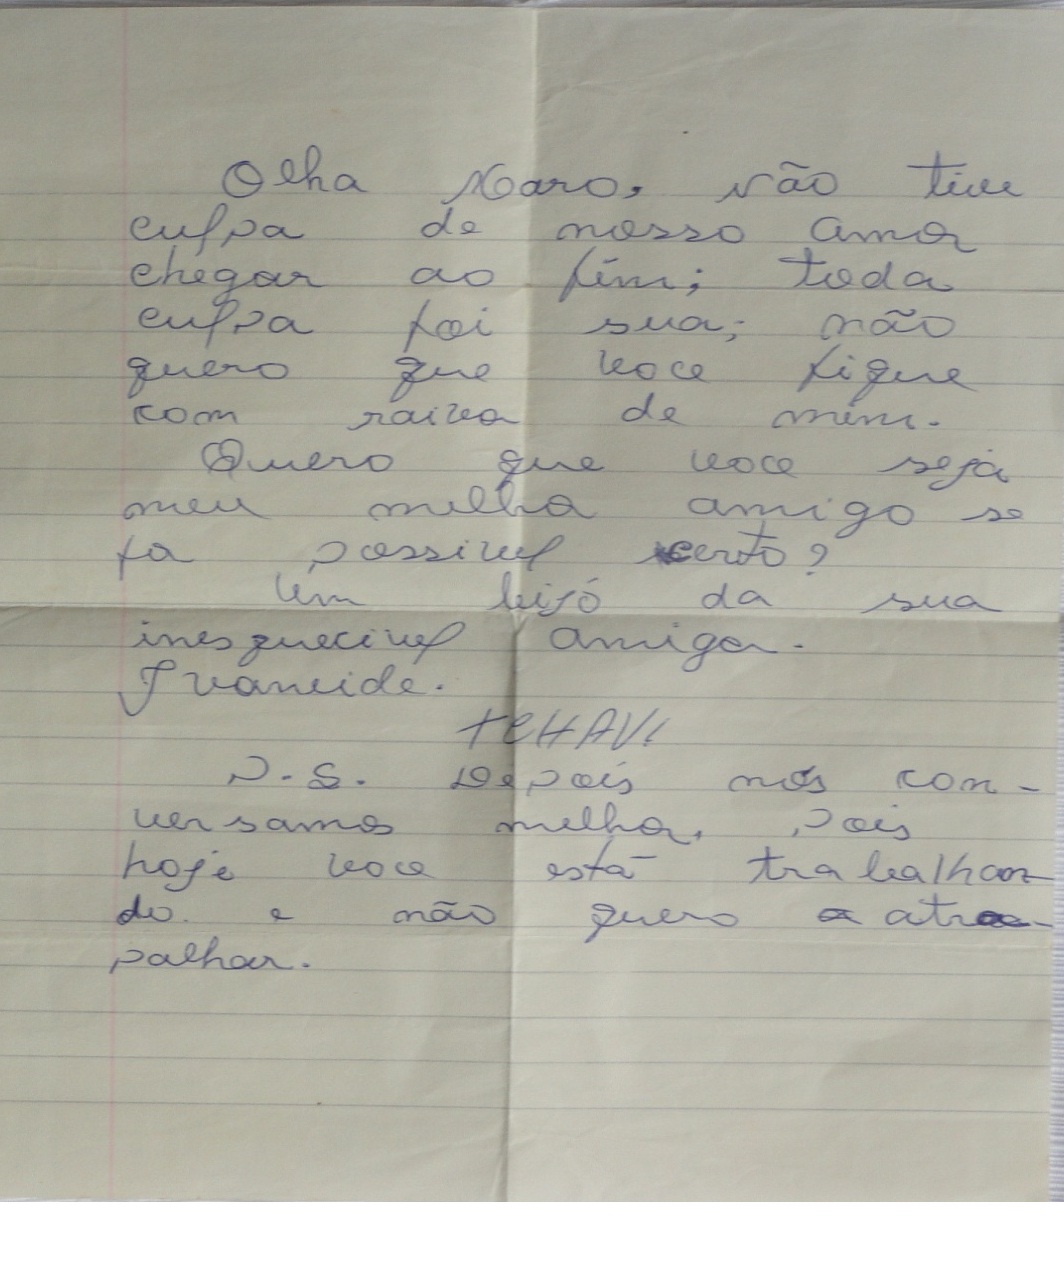 Olha Naro, não tive
culpa de nosso amor
chegar ao fim; toda
culpa foi sua; não
quero que voce fique
com raiva de mim.
Quero que voce seja
meu melho amigo se
fo possivel certo?
Um bijó da sua
inesquecivel amiga.
Ivaneide.
TCHAV!
P.S. Depois nós con-
versamos melho, pois
hoje voce está trabalhan
do e não quero atra-
palhar.